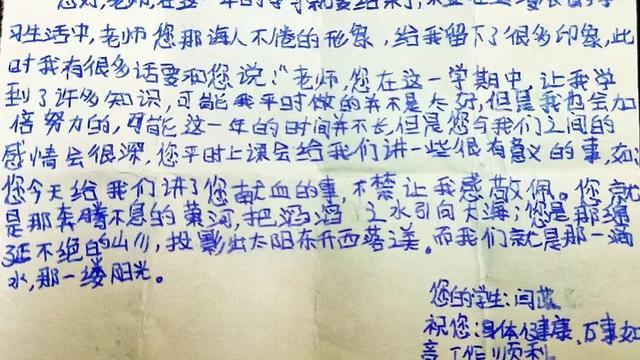 您好,老师,在这一年的
习生活中,老师您那诲人不倦的形象,给我留下了很多印象,此
时我有很多话要和您说:“老师,您在这一学期中,让我学
到了许多知识,可能我平时做的并不是太好,但是我也会加
倍努力的,可能这一年的时间并不长,但是您与我们之间的
感情会很深,您平时上课会给我们讲一些很有意义的事,如:
您今天给我们讲了您献血的事,不禁让我感敬佩。您就
是那奔腾不息的黄河,把滔滔之水引向大海;您是那绵
延不绝的山川,投影出太阳东升西落之美。而我们就是那一滴
水,那一缕阳光。
您的学生:闫
祝您:身体健康、万事如
意工作顺利